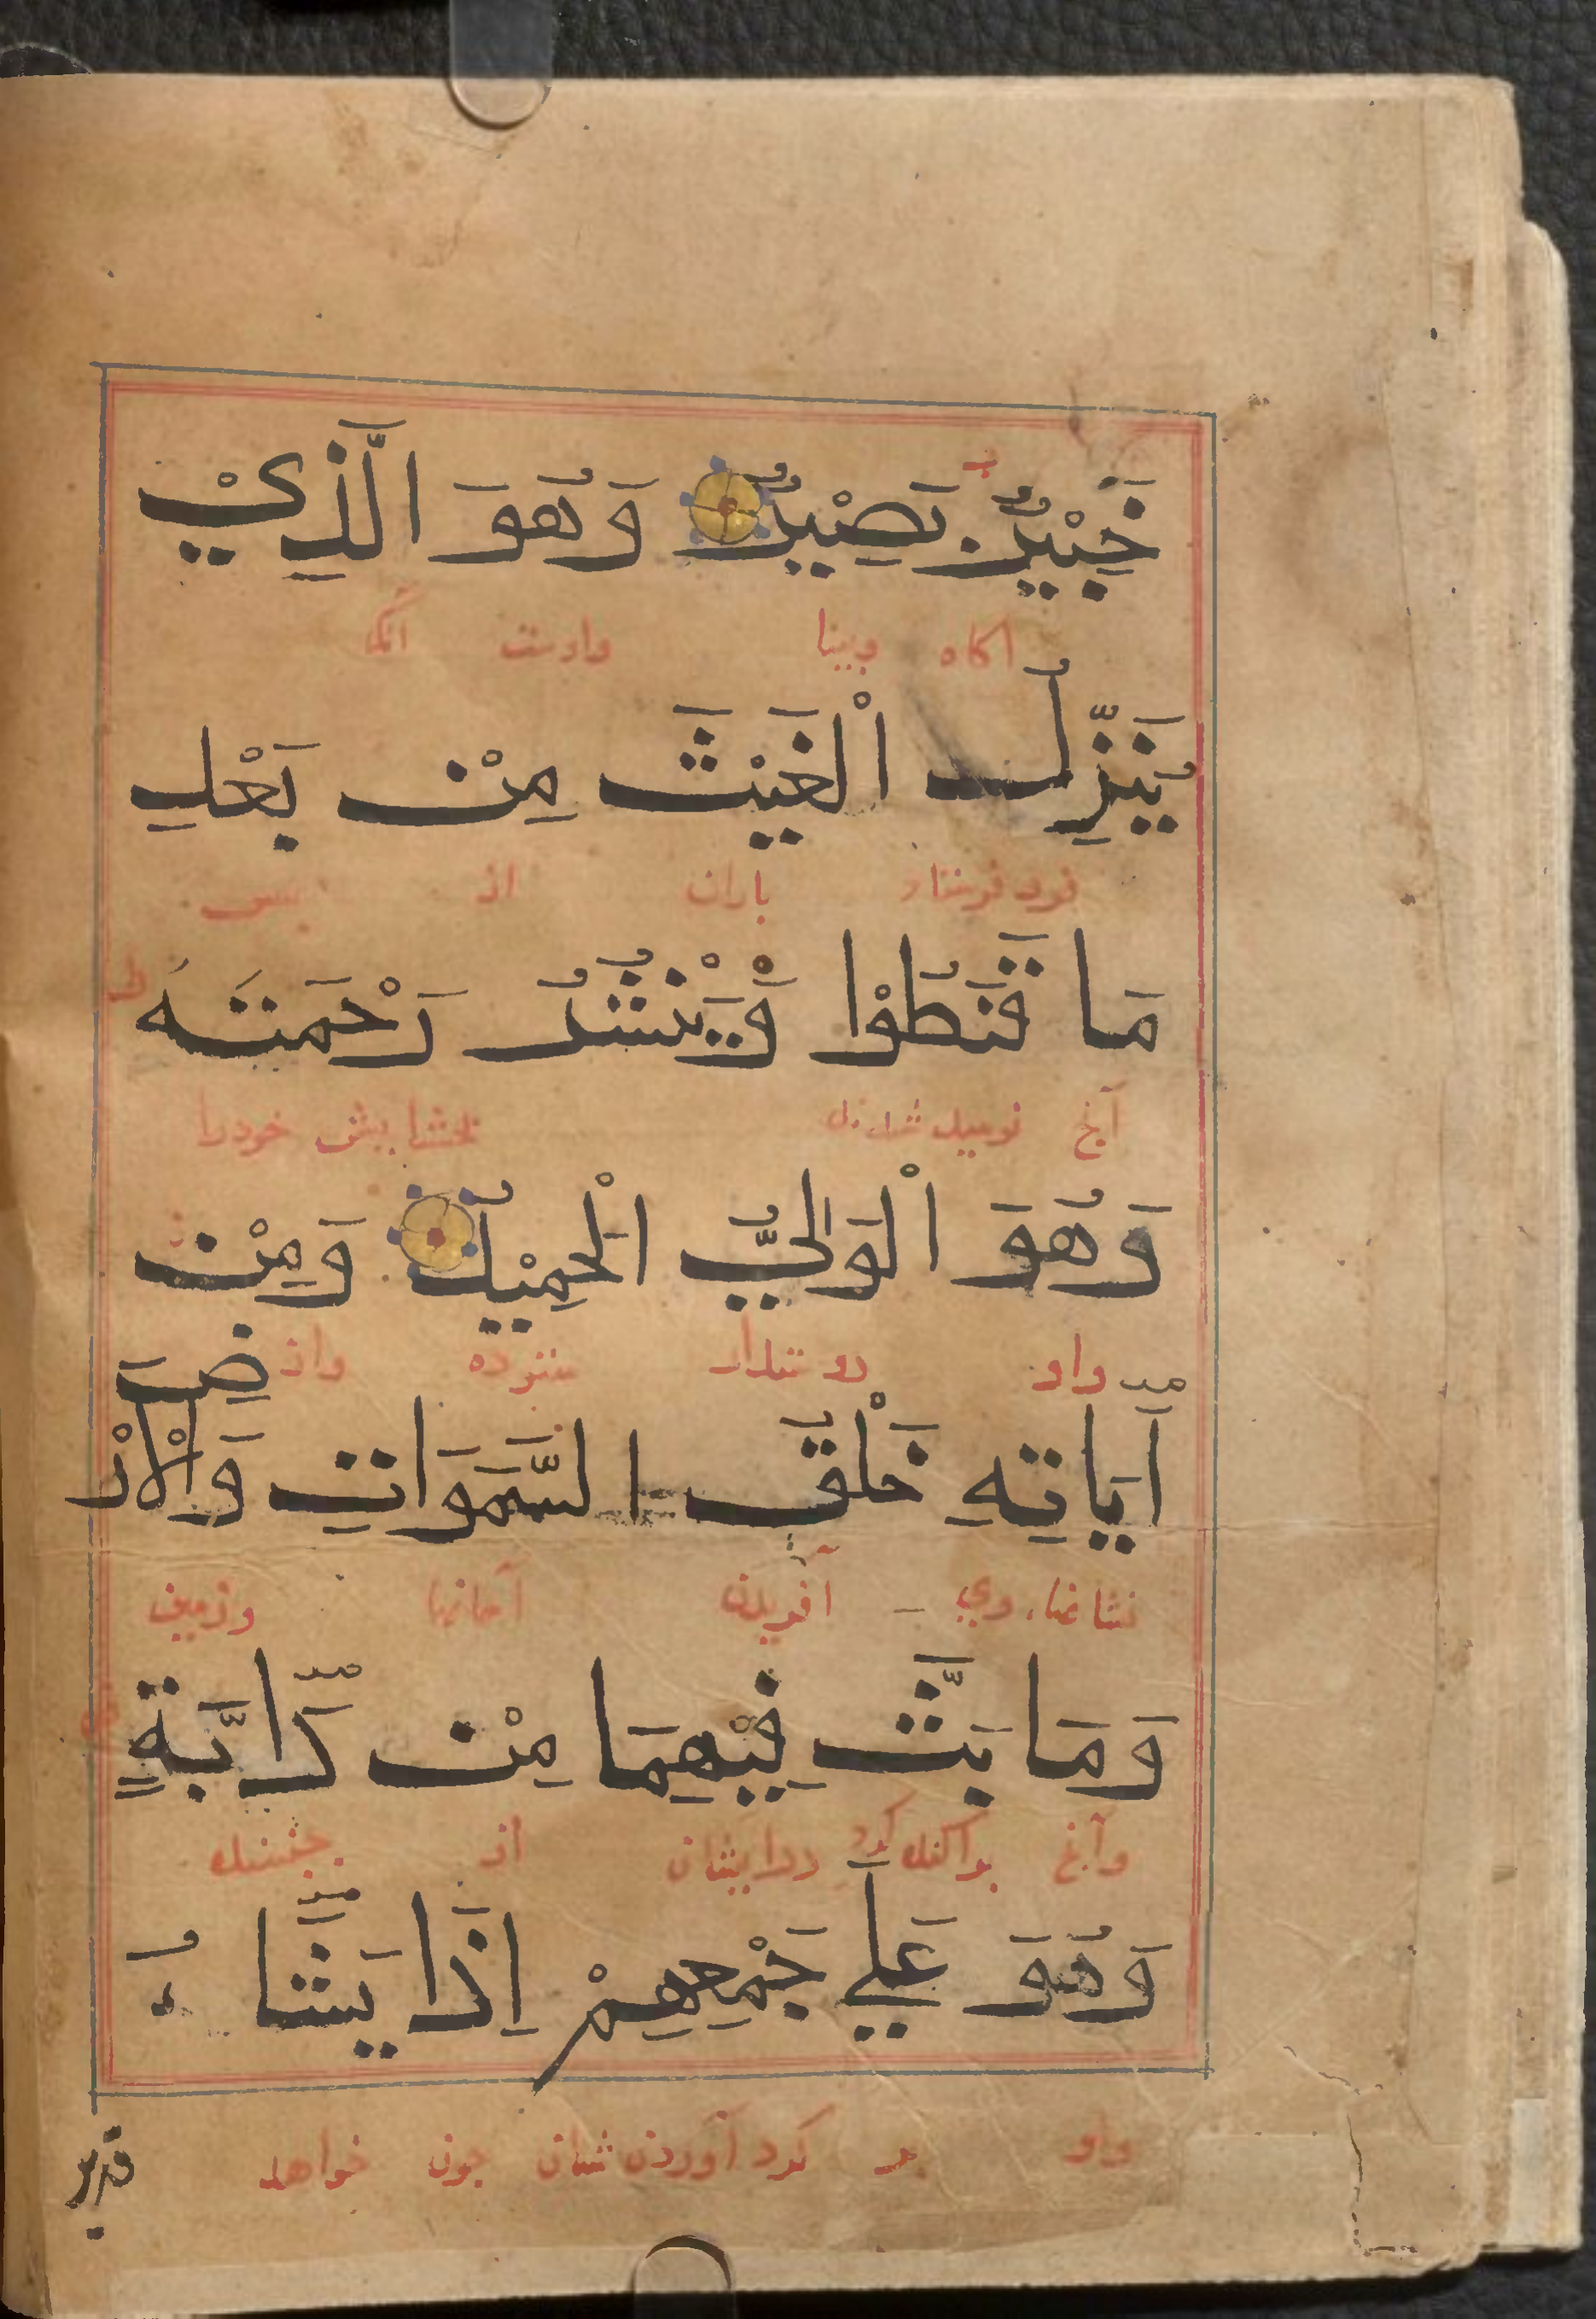 خَبِيْرٌ بَصِيْرٌ وَهُوَ الَّذِيْ
اكاه وبينا واوست آنكه
يُنَزِّلُ الْغَيْثَ مِنْ بَعْدِ
فرود فرستاد باران از پس
مَا قَنَطُوْا وَيَنْشُرُ رَحْمَتَهُ
آنچ نوميد شدند بخشايش خودرا
وَهُوَ الْوَلِيُّ الْحَمِيْدُ وَمِنْ
واو دوستدار ستوده واز
اٰيَاتِهِ خَلْقُ السَّمَوَاتِ وَالْاَرْضِ
نشانها وي آفريدن آسمانها وزمين
وَمَا بَثَّ فِيْهِمَا مِنْ دَابَّةٍ
وآنچ پراكنده كرد درايشان از جنبنده
وَهُوَ عَلٰي جَمْعِهِمْ اِذَا يَشَاءُ
واو بر كرد آوردن شان چون خواهد
قدير